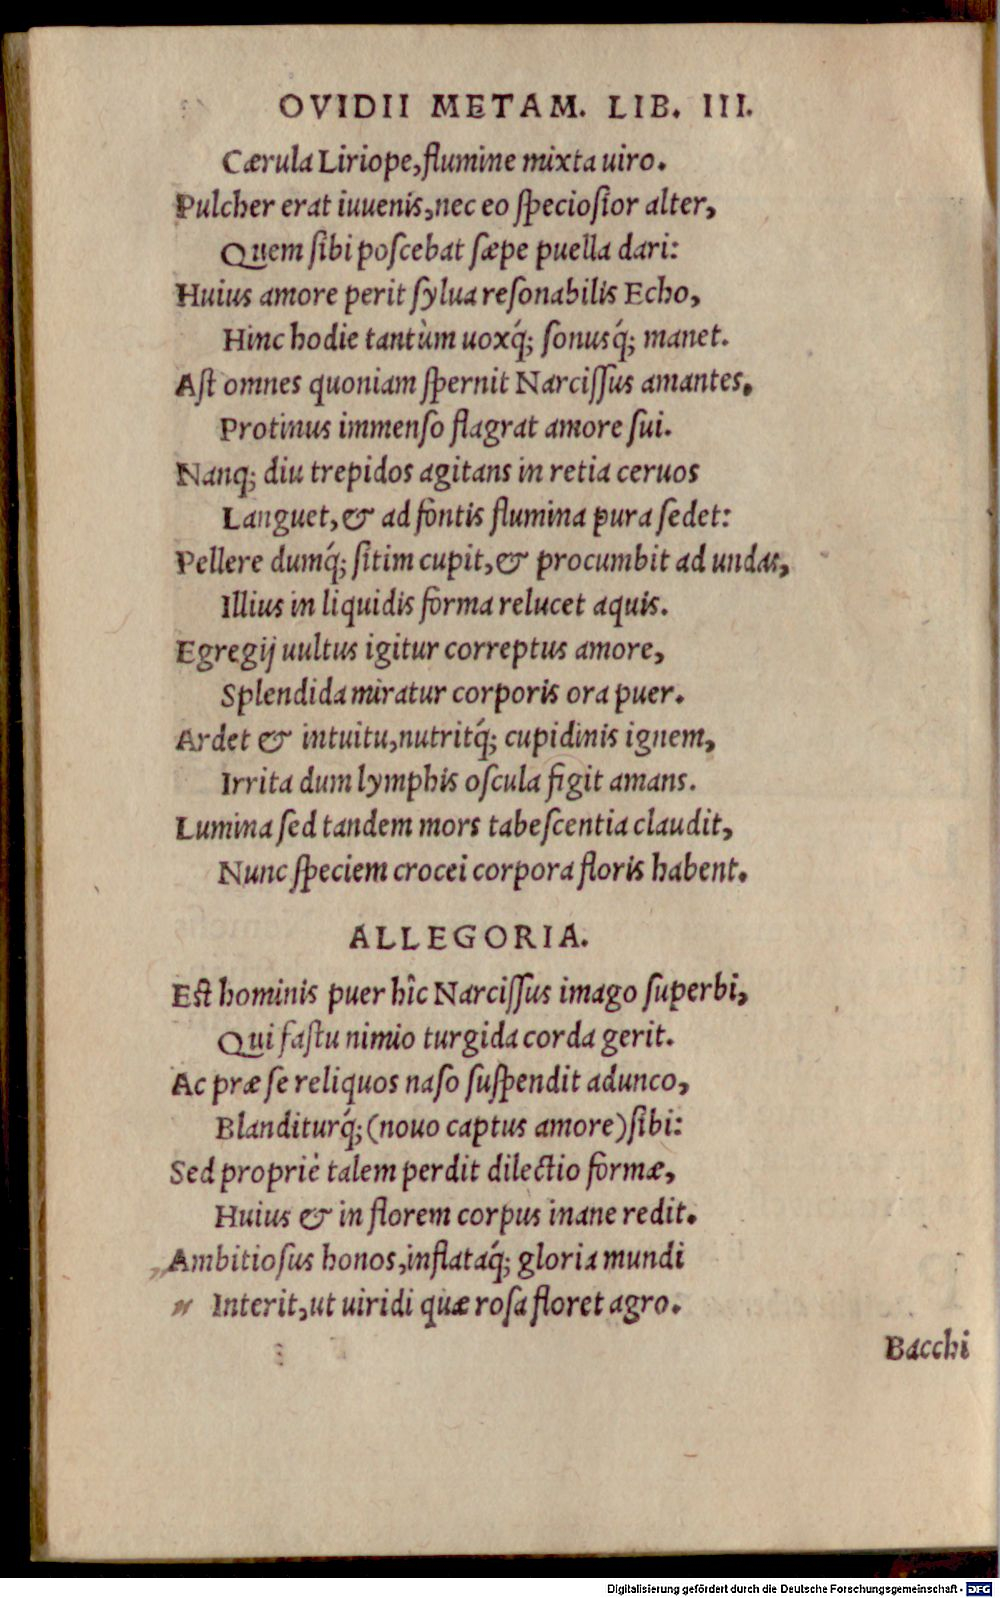 OVIDII METAM. LIB. III.
Cærula Liriope, flumine mixta uiro.
Pulcher erat iuuenis, nec eo speciosior alter,
Quem sibi poscebat sæpe puella dari:
Huius amore perit sylua resonabilis Echo,
Hinc hodie tantùm uoxq́; sonusq́; manet.
Ast omnes quoniam spernit Narcissus amantes,
Protinus immenso flagrat amore sui.
Nanq; diu trepidos agitans in retia ceruos
Languet, & ad fontis flumina pura sedet:
Pellere dumq́; sitim cupit, & procumbit ad undas,
Illius in liquidis forma relucet aquis.
Egregij uultus igitur correptus amore,
Splendida miratur corporis ora puer.
Ardet & intuitu, nutritq́; cupidinis ignem,
Irrita dum lymphis oscula figit amans.
Lumina sed tandem mors tabescentia claudit,
Nunc speciem crocei corpora floris habent.
ALLEGORIA.
Est hominis puer hîc Narcissus imago superbi,
Qui fastu nimio turgida corda gerit.
Ac præ se reliquos naso suspendit adunco,
Blanditurq́; (nouo captus amore) sibi:
Sed propriè talem perdit dilectio formæ,
Huius & in florem corpus inane redit.
„Ambitiosus honos, inflataq́; gloria mundi
„ Interit, ut uiridi quæ rosa floret agro.
Bacchi
Digitalisierung gefördert durch die Deutsche Forschungsgemeinschaft - DFG